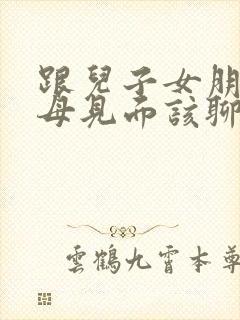 跟兒子女朋
母見面該聊
雲鶴九霄本尊